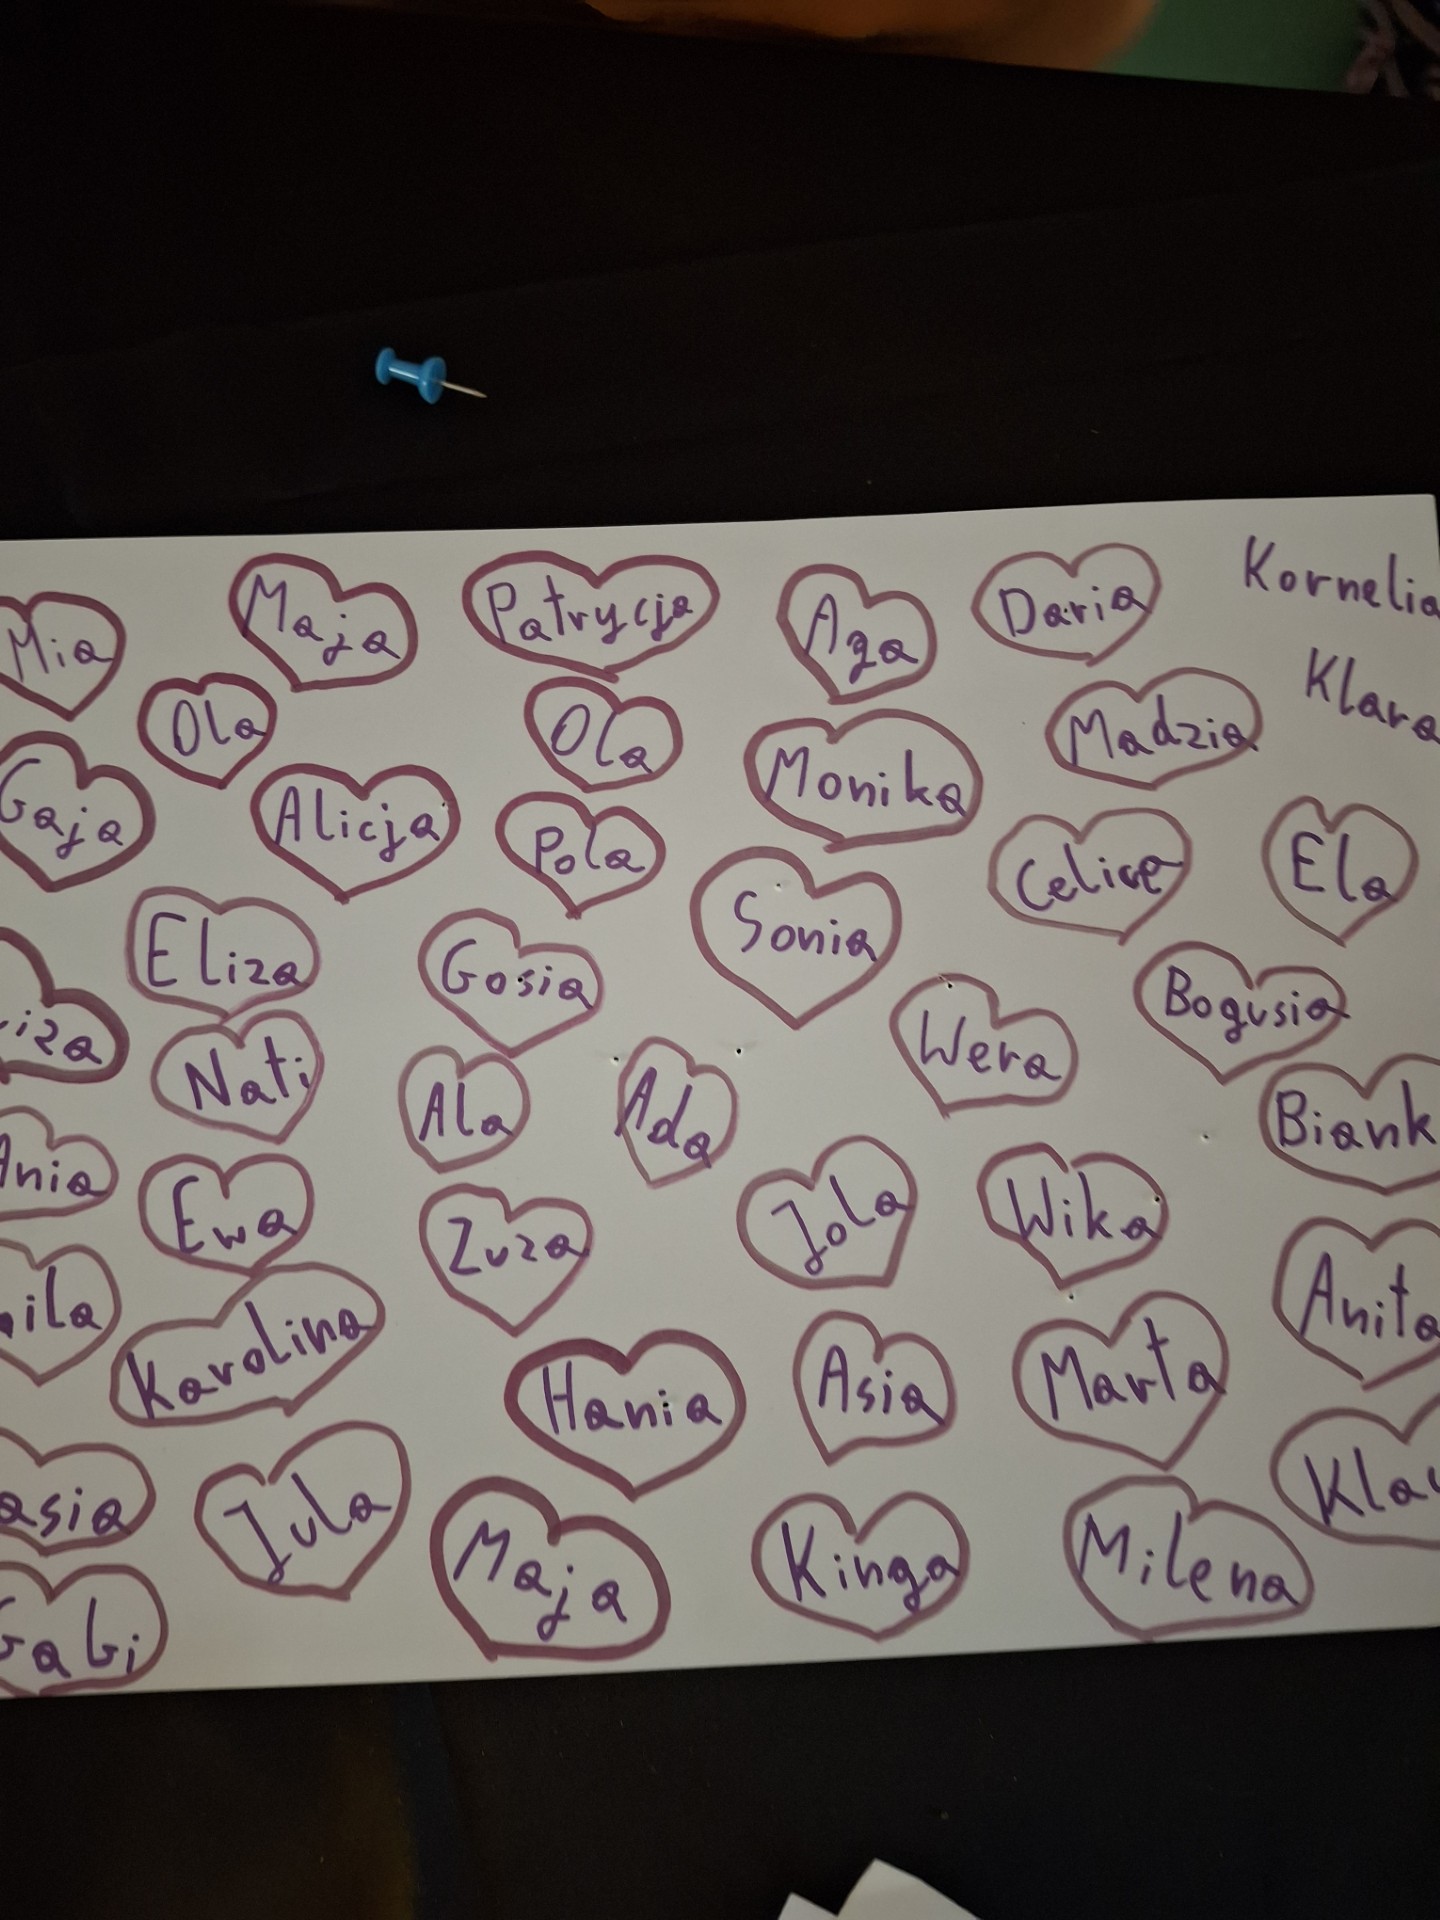 Mia
Maja
Patrycja
Aga
Daria
Kornelia
Ola
Ola
Madzia
Klara
Gaja
Alicja
Pola
Monika
Celice
Ela
Eliza
Gosia
Sonia
Bogusia
iza
Nati
Ala
Ada
Wera
Biank
Ania
Ewa
Zuza
Jola
Wika
Anita
ila
Karolina
Hania
Asia
Marta
asia
Jula
Maja
Kinga
Milena
Kla
Gabi